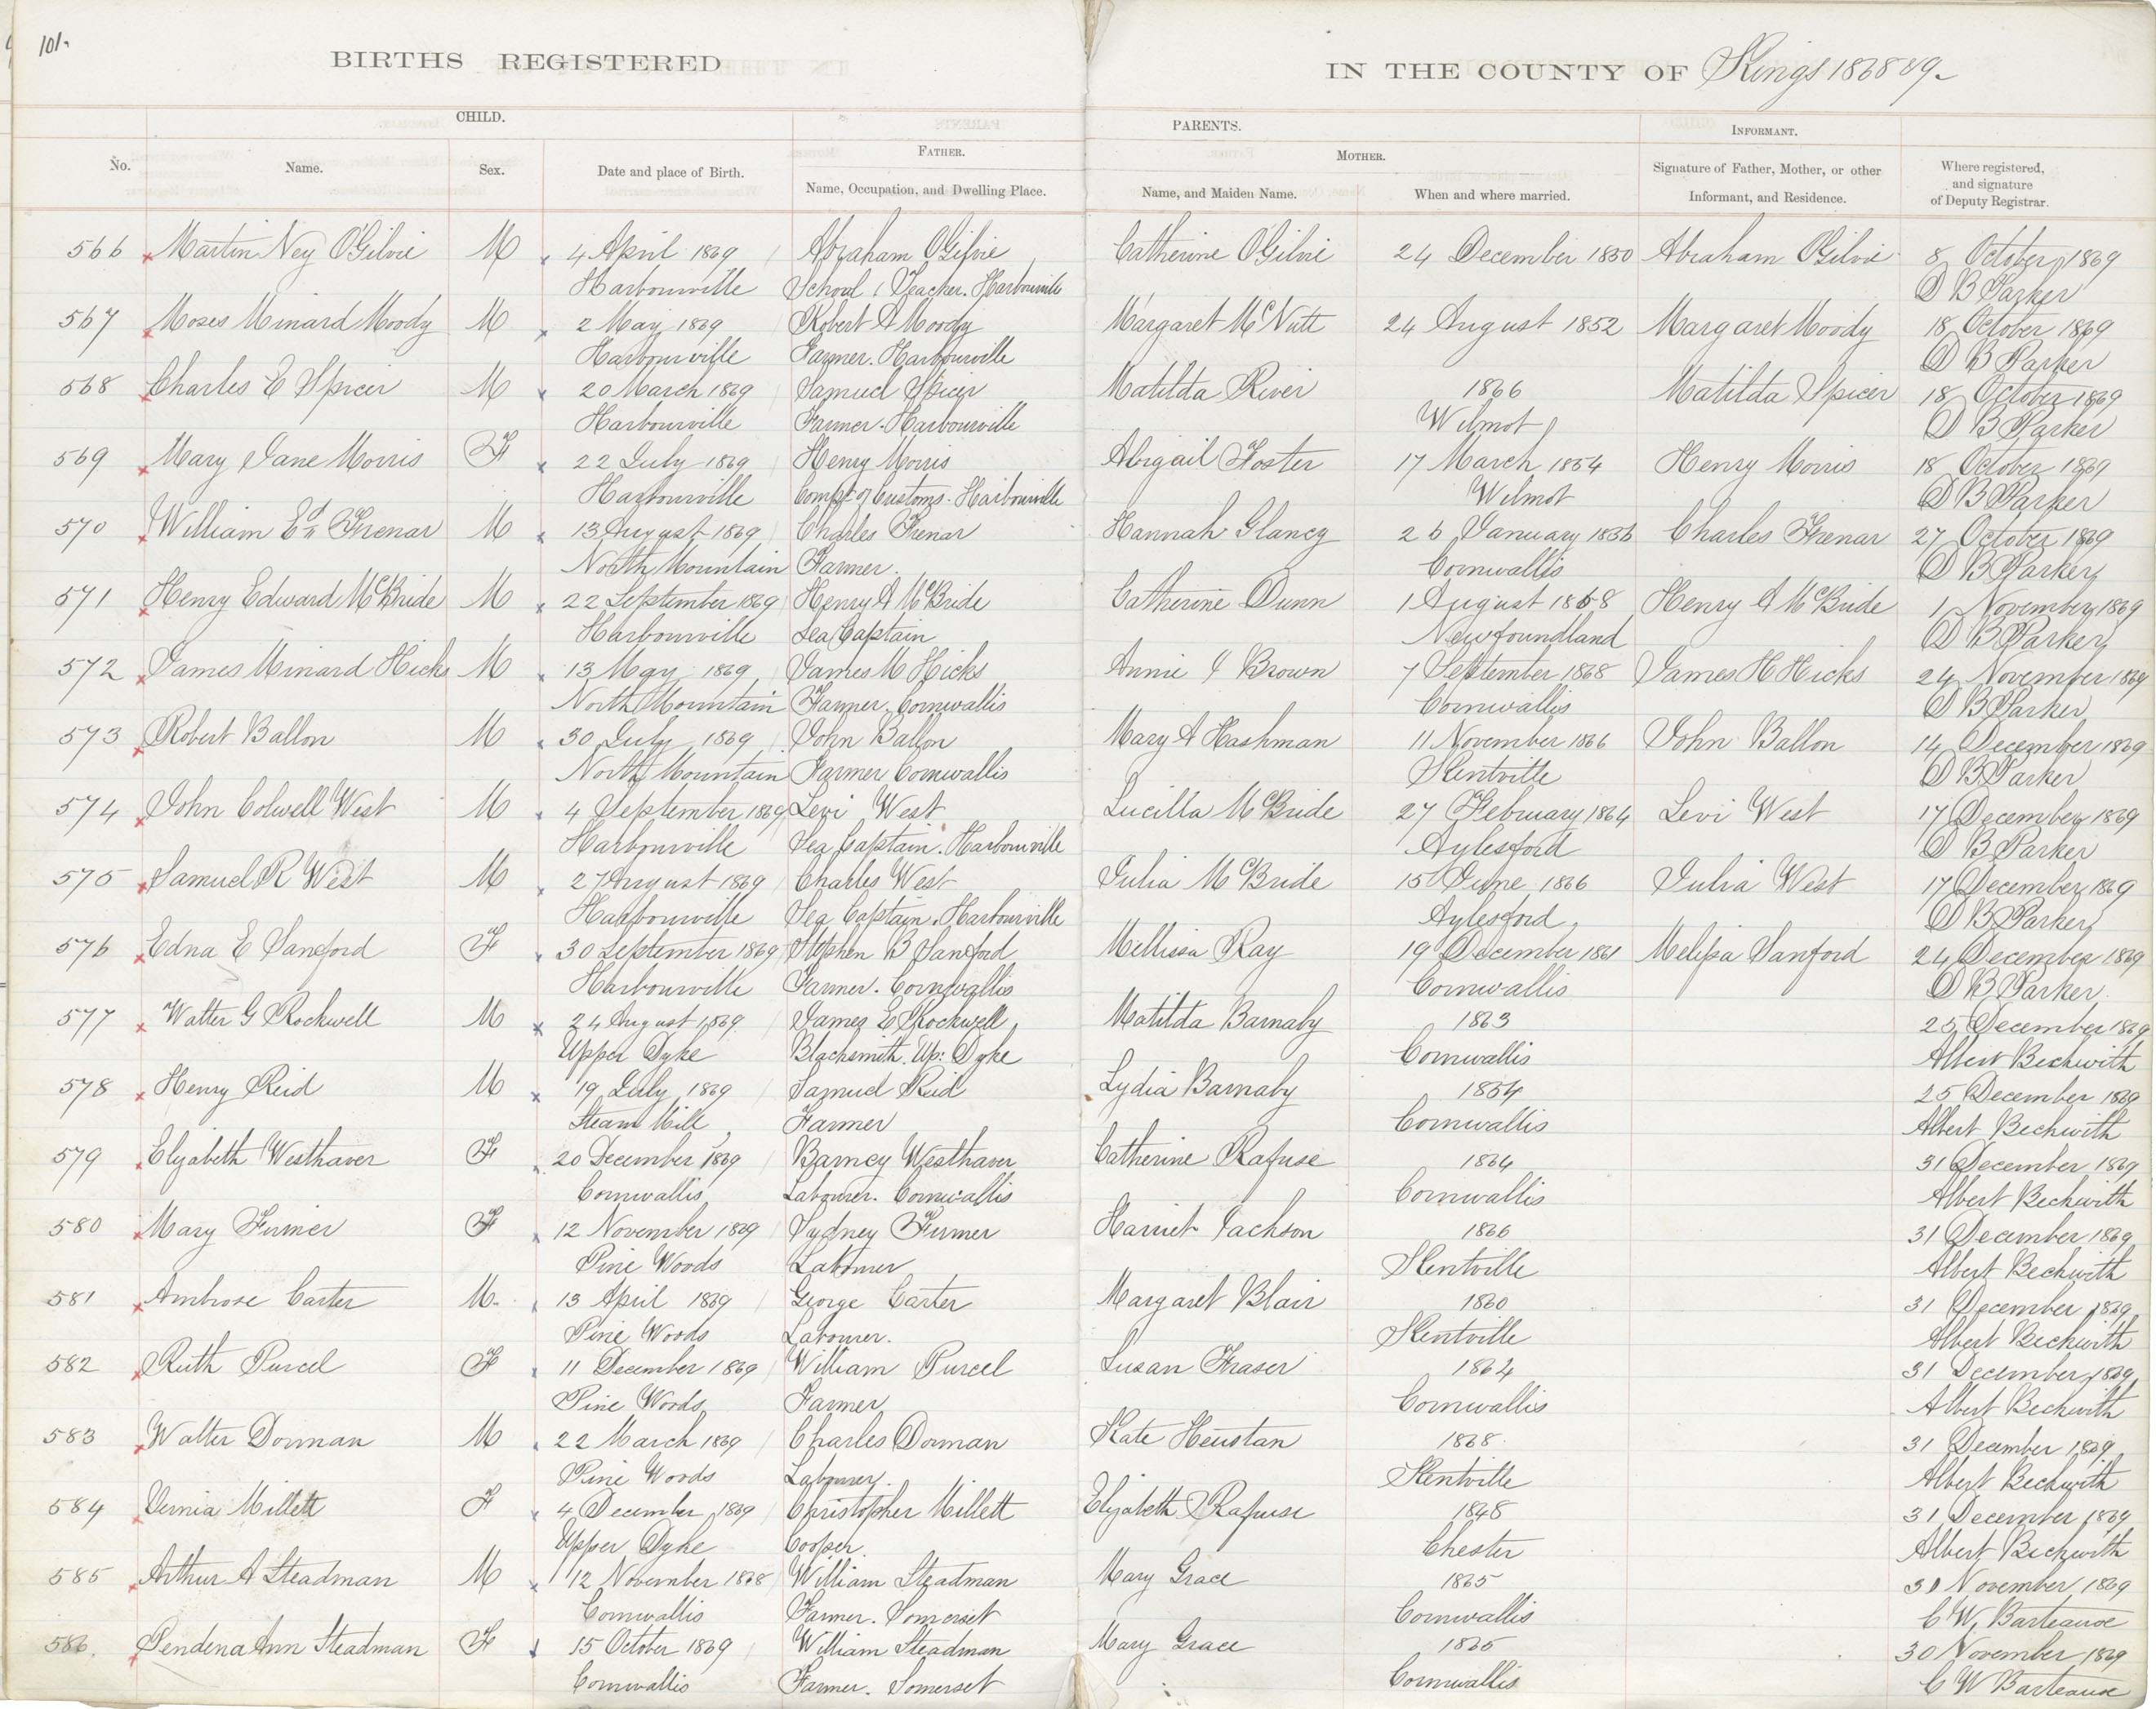 101.
BIRTHS REGISTERED IN THE COUNTY OF Kings 1868 & 9
CHILD. PARENTS. INFORMANT.
FATHER. MOTHER.
No. Name. Sex. Date and place of Birth. Name, Occupation, and Dwelling Place. Name, and Maiden Name. When and where married. Signature of Father, Mother, or other Informant, and Residence. Where registered, and signature of Deputy Registrar.
566 Martin Ney O'Gilvie M 4 April 1869 Abraham O'Gilvie Catherine O'Gilvie 24 December 1850 Abraham O'Gilvie 8 October 1869
Harbourville School Teacher. Harbourville D B Parker
567 Moses Minard Moody M 2 May 1869 Robert A Moody Margaret McNutt 24 August 1852 Margaret Moody 18 October 1869
Harbourville Farmer. Harbourville D B Parker
568 Charles E Spicer M 20 March 1869 Samuel Spicer Matilda River 1866 Matilda Spicer 18 October 1869
Harbourville Farmer. Harbourville Wilmot D B Parker
569 Mary Jane Morris F 22 July 1869 Henry Morris Abigail Foster 17 March 1854 Henry Morris 18 October 1869
Harbourville Compt of Customs. Harbourville Wilmot D B Parker
570 William Ed Frenar M 13 August 1869 Charles Frenar Hannah Glancy 26 January 1856 Charles Frenar 27 October 1869
North Mountain Farmer. Cornwallis D B Parker
571 Henry Edward McBride M 22 September 1869 Henry A McBride Catherine Dunn 1 August 1868 Henry A McBride 1 November 1869
Harbourville Sea Captain Newfoundland D B Parker
572 James Minard Hicks M 13 May 1869 James M Hicks Annie J Brown 7 September 1868 James H Hicks 24 November 1869
North Mountain Farmer. Cornwallis Cornwallis D B Parker
573 Robert Ballon M 30 July 1869 John Ballon Mary A Hashman 11 November 1866 John Ballon 14 December 1869
North Mountain Farmer Cornwallis Kentville D B Parker
574 John Colwell West M 4 September 1869 Levi West Lucilla McBride 27 February 1864 Levi West 17 December 1869
Harbourville Sea Captain. Harbourville Aylesford D B Parker
575 Samuel R West M 27 August 1869 Charles West Julia McBride 15 June 1866 Julia West 17 December 1869
Harbourville Sea Captain. Harbourville Aylesford D B Parker
576 Edna E Sanford F 30 September 1869 Stephen B Sanford Mellissa Ray 19 December 1861 Melissa Sanford 24 December 1869
Harbourville Farmer. Cornwallis Cornwallis D B Parker
577 Walter G Rockwell M 24 August 1869 James E Rockwell Matilda Barnaby 1863 25 December 1869
Upper Dyke Blacksmith. Up: Dyke Cornwallis Albert Beckwith
578 Henry Reid M 19 July 1869 Samuel Reid Lydia Barnaby 1854 25 December 1869
Steam Mill Farmer Cornwallis Albert Beckwith
579 Elizabeth Westhaver F 20 December 1869 Barney Westhaver Catherine Rafuse 1864 31 December 1869
Cornwallis Labourer. Cornwallis Cornwallis Albert Beckwith
580 Mary Furmer F 12 November 1869 Sydney Furmer Harriet Jackson 1866 31 December 1869
Pine Woods Labourer Kentville Albert Beckwith
581 Ambrose Carter M. 13 April 1869 George Carter Margaret Blair 1860 31 December 1869
Pine Woods Labourer. Kentville Albert Beckwith
582 Ruth Purcel F 11 December 1869 William Purcel Susan Fraser 1864 31 December 1869
Pine Woods Farmer Cornwallis Albert Beckwith
583 Walter Dorman M 22 March 1869 Charles Dorman Kate Heustan 1868 31 December 1869
Pine Woods Labourer. Kentville Albert Beckwith
584 Vernia Millett F 4 December 1869 Christopher Millett Elizabeth Rafuse 1848 31 December 1869
Upper Dyke Cooper. Chester Albert Beckwith
585 Arthur A Steadman M 12 November 1868 William Steadman Mary Grace 1865 30 November 1869
Cornwallis Farmer. Somerset Cornwallis C W Barteaux
586. Pendena Ann Steadman F 15 October 1869 William Steadman Mary Grace 1865 30 November 1869
Cornwallis Farmer. Somerset Cornwallis C W Barteaux